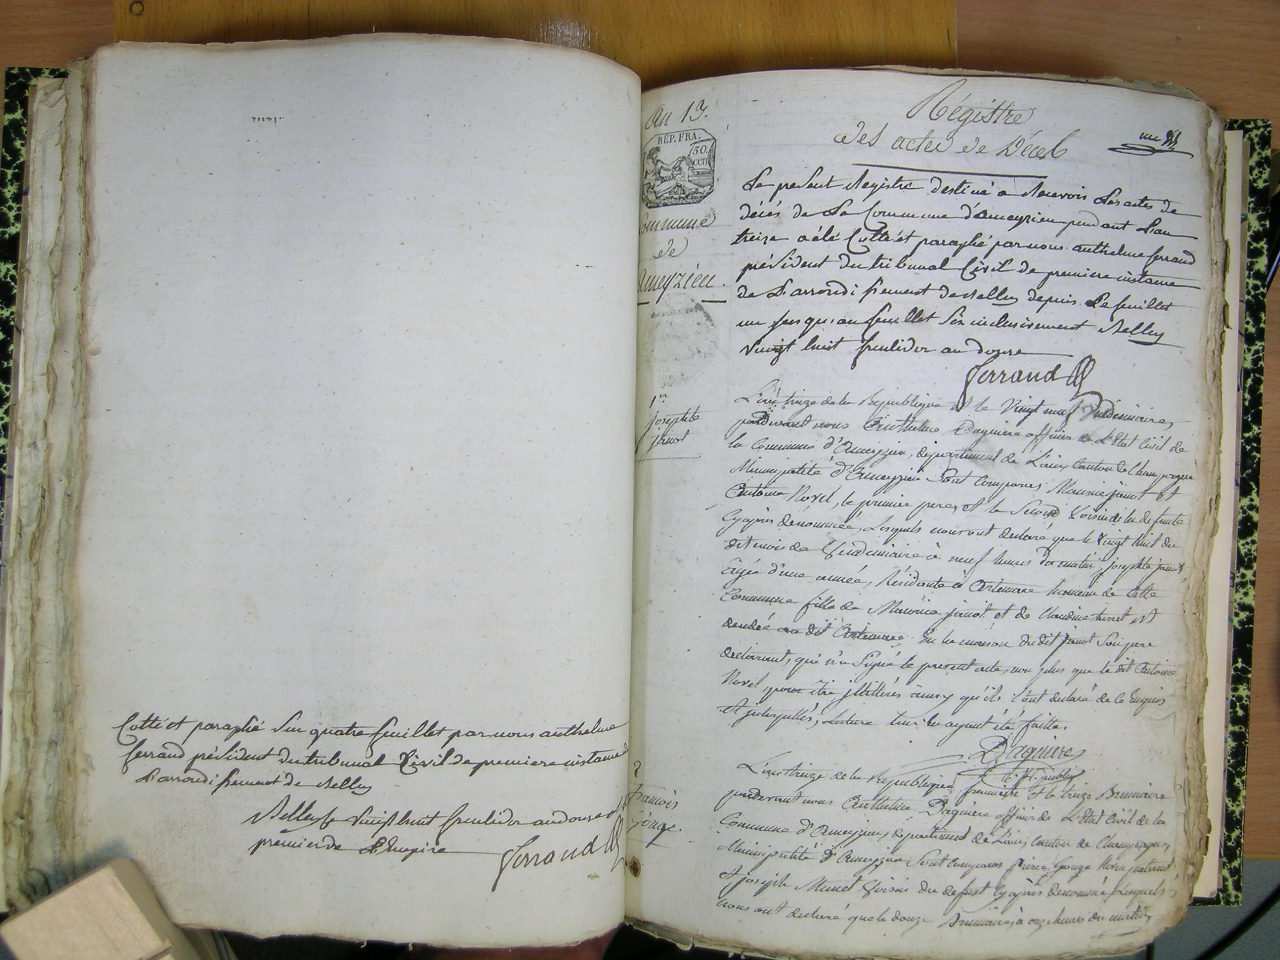 Cotté et paraphé sur quatre feuillet par nous anthelme
ferrand président du tribunal Civil de premiere instance
L'arrondissement de Belley
Belley le vingt huit fructidor an douze et
premier de L'Empire
ferrand
An 13.
RÉP. FRA.
50
CEN
Commune
de
Ameyzieu.
1er
Josephte
Janot
2
françois
Gouze.
Régistre
des actes de Décès
Le present Registre destiné a Recevoir Les actes de
décés de La Commune d'ameyzieu pendant L'an
treize a été Cotté et paraphé par nous anthelme ferrand
président du tribunal Civil de premiere instance
de L'arrondissement de Belley depuis Le feuillet
un jusqu'au feuillet six inclusivement Belley
vingt huit fructidor an douze
ferrand
L'an treize de la République et le vingt neuf Vendemiaire,
pardevant nous Anthelme Daguiere officier de L'Etat Civil de
la Commune d'Ameyzieu, département de L'ain, Canton de Champagne
Municipalité d'Ameyzieu Sont Comparus Maurice Janot et
Antoine Novel, le premier pere, et le Second Voisin de la defunte
Cyaprès dénommée, Lesquels nous ont declaré que le Vingt huit du
dit mois de Vendemiaire à neuf heures du matin, josephte janot
Agée d'une année, Résidante à Artemare hameau de Cette
Commune fille de Maurice janot et de Claudine et
decedée au dit Artemare, en la maison du dit Janot Son pere
declarant, qui n'a Signé le present acte, non plus que le dit Antoine
Novel, pour être jlletérés ainsy qu'ils l'ont declaré de ce Enquis
et jnterpellés, Lecture leur en ayant été faitte.
Daguiere
L'an treize de la République française et le treize Brumaire
pardevant nous Anthelme Daguiere officier de L'Etat Civil de la
Commune d'Ameyzieu, departement de L'ain, Canton de Champagne,
Municipalité d'Ameyzieu, Sont Comparus Gouze
et joseph Voisin du defunt Cyaprès denommé, Lesquels
nous ont declaré que le douze Brumaire, à onze heures du matin,